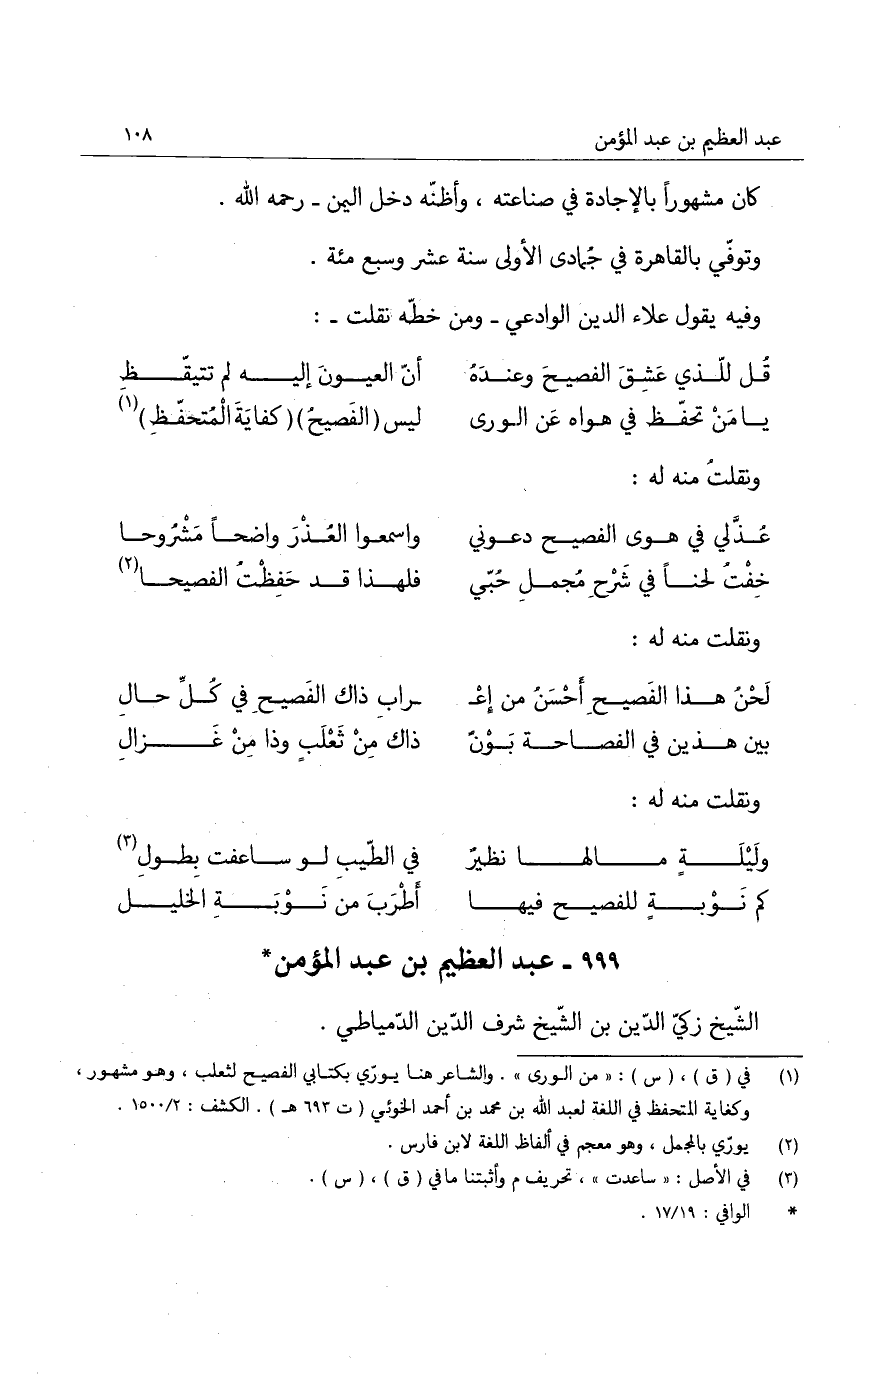 عبد العظيم بن عبد المؤمن ١٠٨
كان مشهوراً بالإجادة في صناعته ، وأظنّه دخل اليمن ـ رحمه الله .
وتوفّي بالقاهرة في جُمادى الأولى سنة عشر وسبع مئة .
وفيه يقول علاء الدين الوادعي ـ ومن خطّه نقلت ـ :
قُل للّذي عَشِقَ الفصيحَ وعندَهُ أنّ العيونَ إليه لم تتيقّظِ
يا مَنْ تحفّظ في هواه عَن الورى ليس (الفَصيحُ) (كفايَةَ الْمُتحفّظِ) (١)
ونقلتُ منه له :
عُذَّلي في هوى الفصيح دعوني واسمعوا العُذْرَ واضحاً مَشْروحا
خِفْتُ لحناً في شَرْحِ مُجملِ حُبّي فلهذا قد حَفِظْتُ الفصيحا (٢)
ونقلت منه له :
لَحْنُ هذا الفَصيحِ أَحْسَنُ من إعْـ ـرابِ ذاك الفَصيحِ في كُلِّ حالِ
بين هذين في الفصاحة بَوْنٌ ذاك مِنْ ثَعْلَبٍ وذا مِنْ غَزالِ
ونقلت منه له :
ولَيْلَةٍ مالها نظيرُ في الطّيبِ لو ساعفت بطولِ (٣)
كم نَوْبةٍ للفصيح فيها أَطْرَبَ من نَوْبَةِ الخليلِ
٩٩٩ ـ عبد العظيم بن عبد المؤمن*
الشّيخ زكيّ الدّين بن الشّيخ شرف الدّين الدّمياطي .
(١) في ( ق ) ، ( س ) : « من الورى » . والشاعر هنا يورّي بكتابي الفصيح لثعلب ، وهو مشهور ،
وكفاية المتحفظ في اللغة لعبد الله بن محمد بن أحمد الخوئي ( ت ٦٩٣ هـ ) . الكشف : ١٥٠٠/٢ .
(٢) يورّي بالمجمل ، وهو معجم في ألفاظ اللغة لابن فارس .
(٣) في الأصل : « ساعدت » ، تحريف م وأثبتنا مافي ( ق ) ، ( س ) .
* الوافي : ١٧/١٩ .